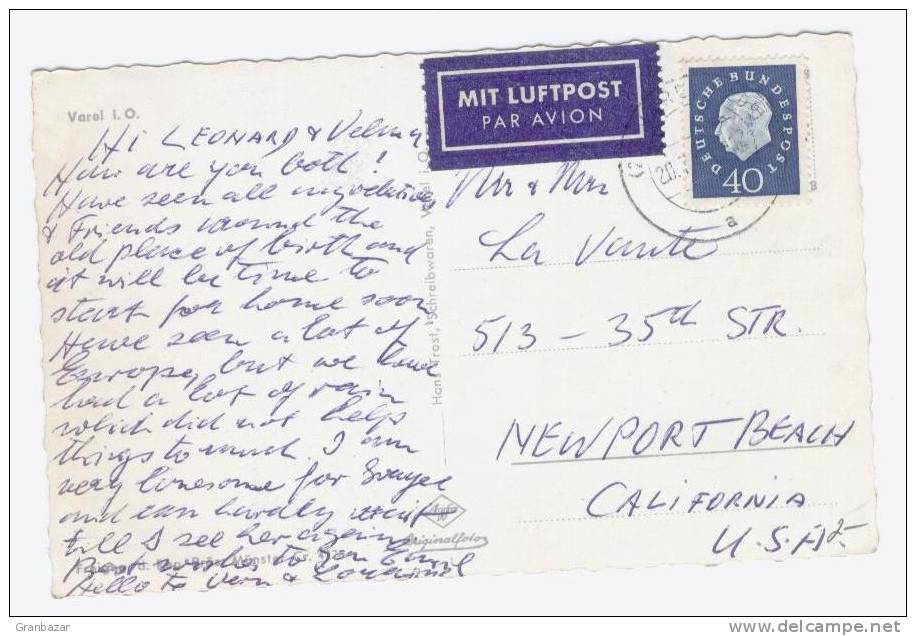 Varel i. O.
MIT LUFTPOST
PAR AVION
DEUTSCHE BUNDESPOST
40
20.
a
Hi LEONARD & Velma
How are you both!
Have seen all my relatives
& Friends around the
old place of birth and
it will be time to
start for home soon
Have seen a lot of
Europe, but we have
had a lot of rain
which did not help
things to much. I am
very lonesome for
and can hardly wait
till I see her again
Best wishes to you
Hello to Vern &
Hans Trost, Schreibwaren, Varel i. O.
Originalfoto
Mr & Mrs
La Vante
513 - 35th STR.
NEWPORT BEACH
CALIFORNIA
U.S.A.
Granbazar
www.delcampe.net